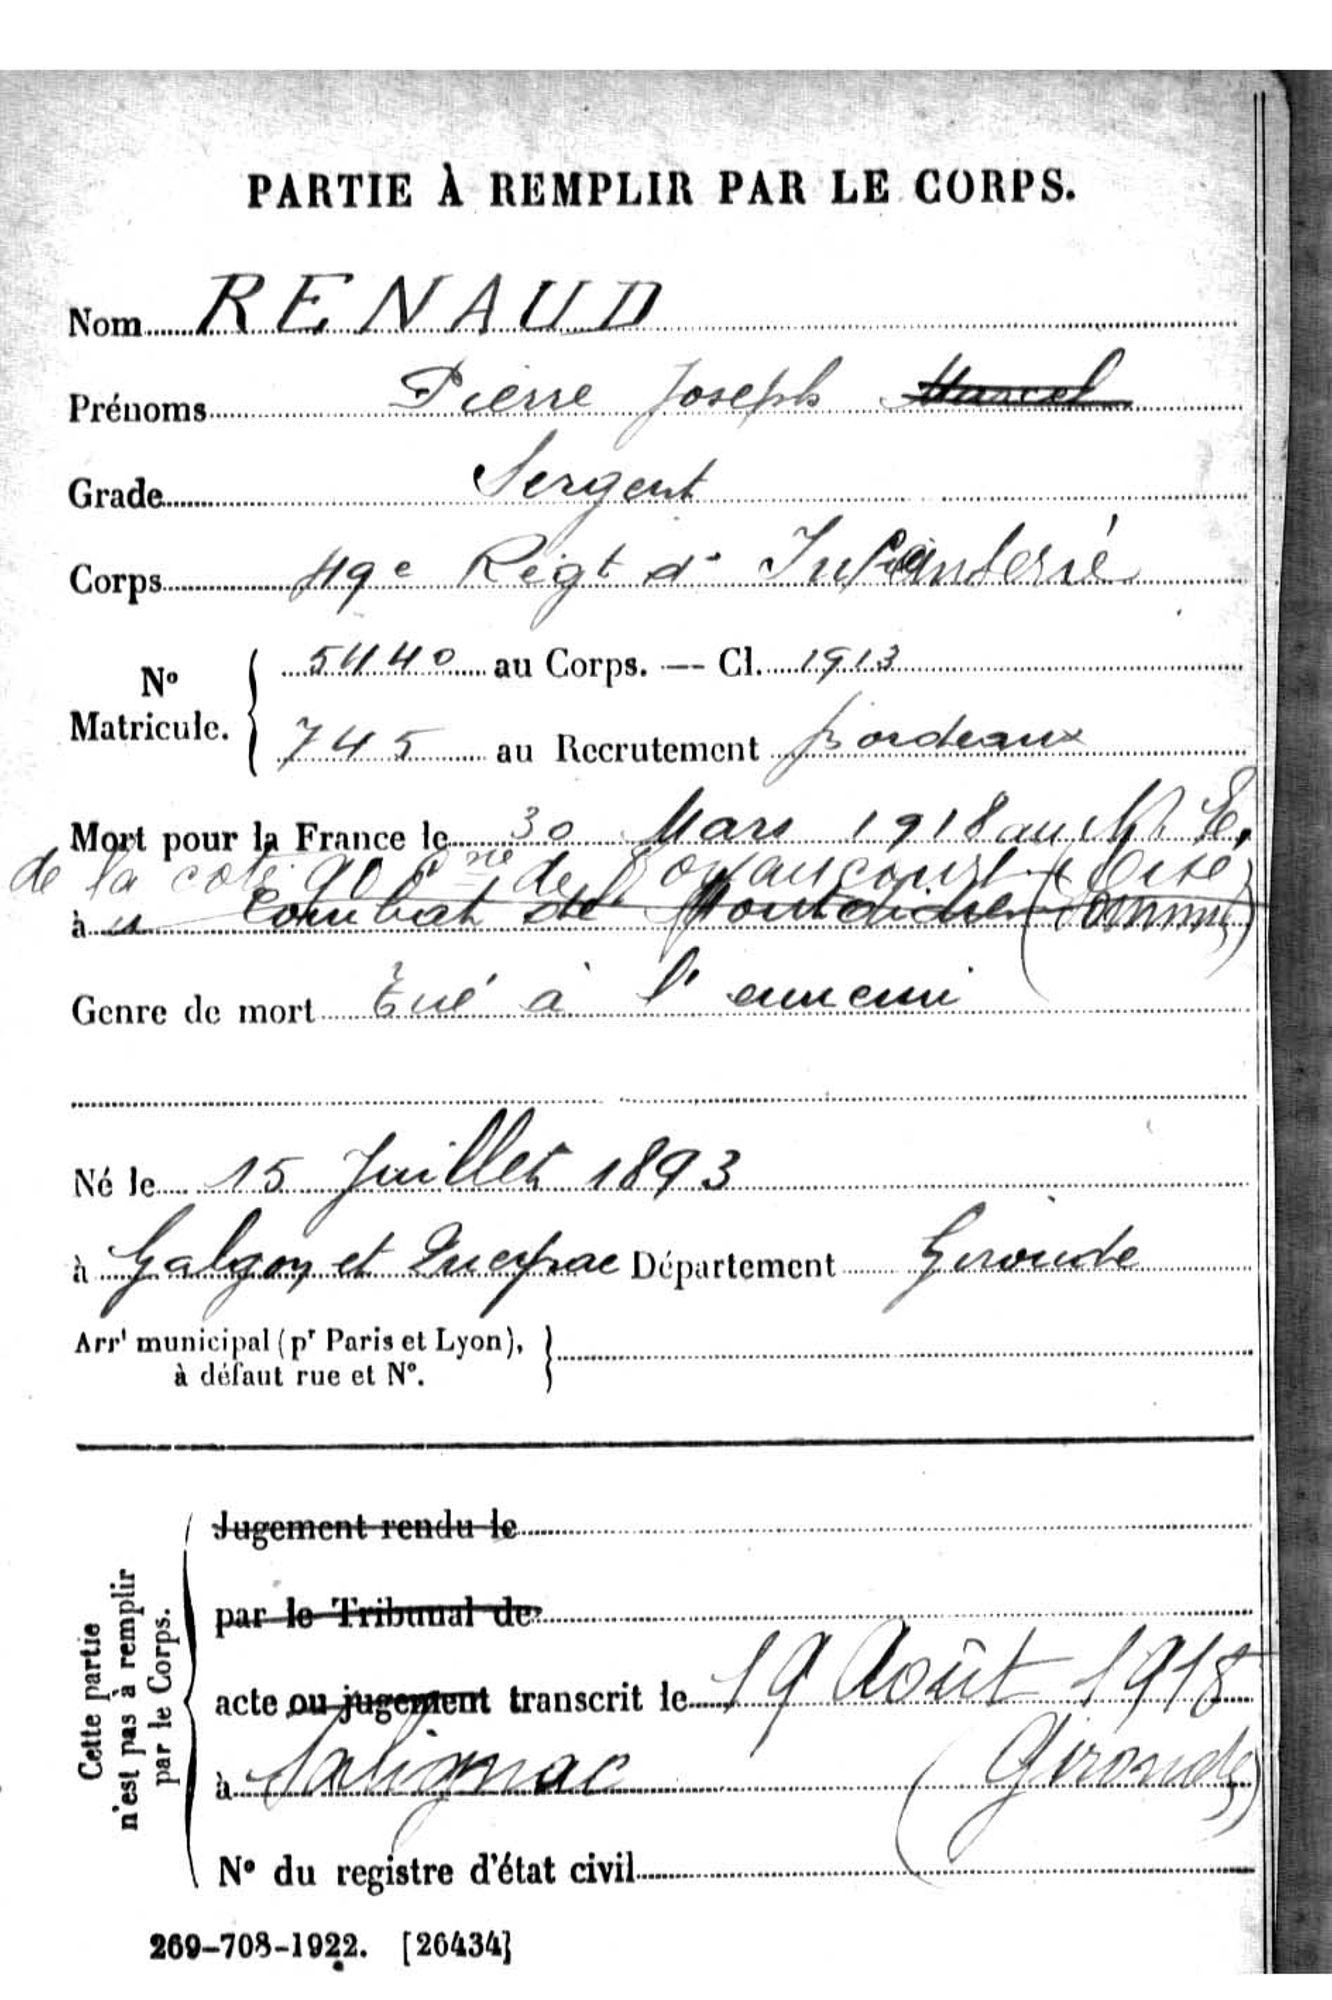 PARTIE À REMPLIR PAR LE CORPS.
Nom RENAUD
Prénoms Pierre Joseph Marcel
Grade Sergent
Corps 49e Régt d' Infanterie
No Matricule. 5440 au Corps. — Cl. 1913
745 au Recrutement Bordeaux
Mort pour la France le 30 Mars 1918 au N. E.
de la cote 90 Cne de Royaucourt (Oise)
à combat de Montdidier (Somme)
Genre de mort Tué à l'ennemi
Né le 15 Juillet 1893
à Galgon et Queyrac Département Gironde
Arrt municipal (pr Paris et Lyon),
à défaut rue et No.
Cette partie
n'est pas à remplir
par le Corps.
Jugement rendu le
par le Tribunal de
acte ou jugement transcrit le 19 Août 1918
à Salignac (Gironde)
No du registre d'état civil
269-708-1922. [26434]